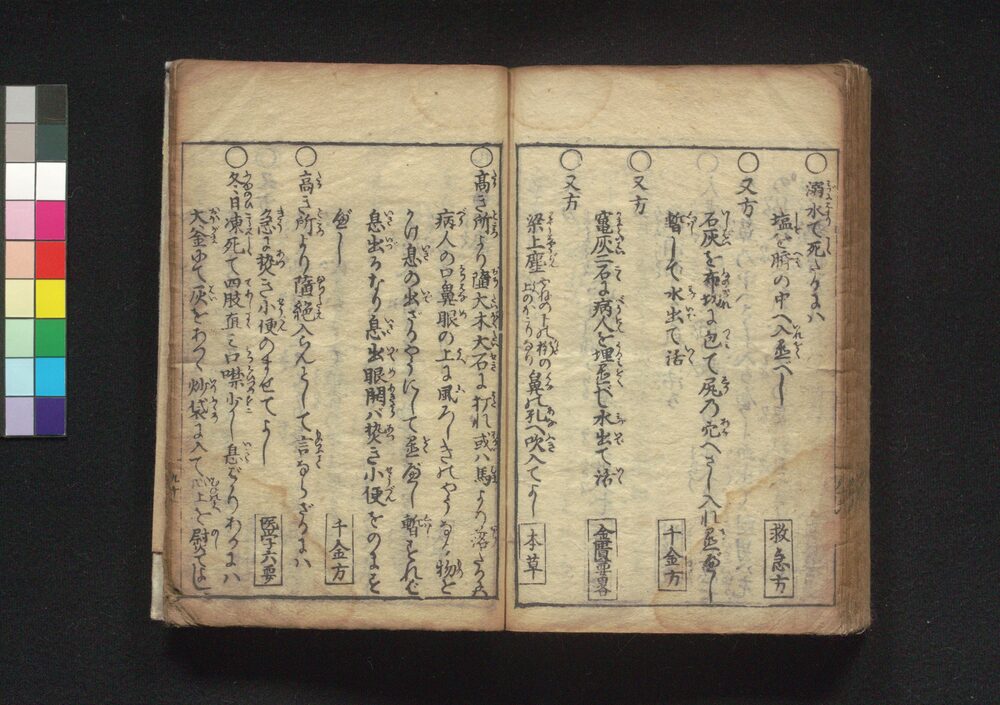 ○溺水て死たるには
塩を臍の中へ入置べし
救急方
○又方
石灰を布切に包て尻の穴へさし入れ置べし
暫して水出て活
千金方
○又方
竈灰二石に病人を埋置ば水出て活
金匱要略
○又方
梁上塵
鼻の孔へ吹入てよし
本草
○高き所より墮大木大石に打れ或ハ馬より落たるは
病人の口鼻眼の上に風ろしきのやうなる物を
かけ息の出ざるやうにして置べし暫すれば
息出るなり息出眼開バ熱き小便をのますべし
千金方
○高き所より墮絶入らんとして言ならざるには
急に熱き小便のませてよし
医学六要
○冬日凍死て四肢直口噤少し息ばかりあるには
大釜にて灰をあつく炒袋に入て心上を熨てよし
九十